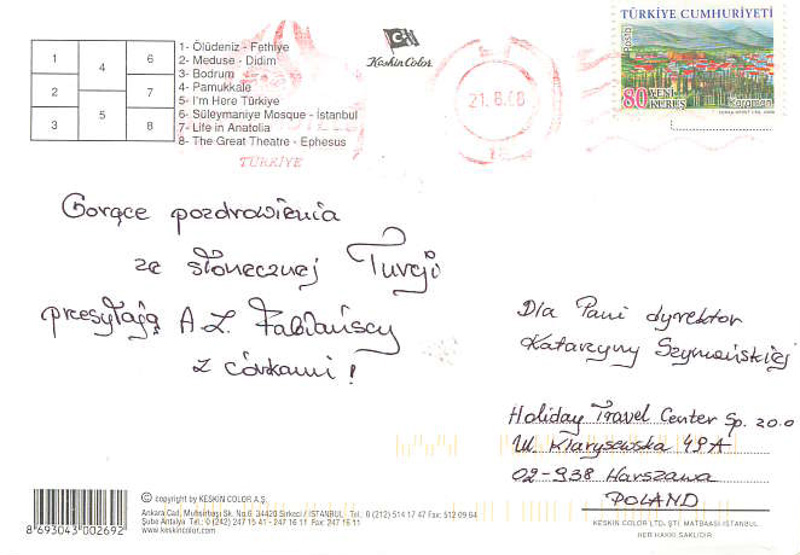 1- Ölüdeniz - Fethiye
2- Meduse - Didim
3- Bodrum
4- Pamukkale
5- I'm Here Türkiye
6- Süleymaniye Mosque - İstanbul
7- Life in Anatolia
8- The Great Theatre - Ephesus
1
2
3
4
5
6
7
8
TÜRKİYE
Keskin Color
21.6.08
TÜRKİYE CUMHURİYETİ
Posta
80 YENİ KURUŞ
Karaman
Gorące pozdrowienia
ze słonecznej Turcji
przesyłają A.Z. Fabiańscy
z córkami!
Dla Pani dyrektor
Katarzyny Szymańskiej
Holiday Travel Center Sp. zo.o
Ul. Klarysewska 49A
02-938 Warszawa
POLAND
8 693043 002692
© copyright by KESKİN COLOR A.Ş.
Ankara Cad. Muhsirbaşı Sk. No.6 34420 Sirkeci / İSTANBUL Tel.: 0 (212) 514 17 47 Fax: 512 09 64
Şube Antalya Tel.: 0 (242) 247 15 41 - 247 16 11 Fax: 247 16 11
www.keskincolor.com
KESKİN COLOR LTD. ŞTİ. MATBAASI-İSTANBUL
HER HAKKI SAKLIDIR